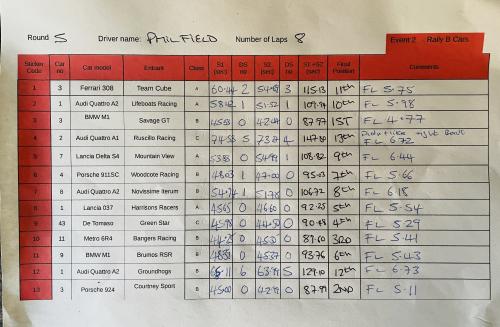 Round 5 Driver name: PHIL FIELD Number of Laps 8 Event 2 Rally B Cars
Sticker Code Car no Car model Entrant Class S1 (sec) DS no S2 (sec) DS no S1 +S2 (sec) Final Position Comments
1 3 Ferrari 308 Team Cube A 60.44 2 3 115.13 11th FL 5.75
2 1 Audi Quattro A2 Lifeboats Racing A 58.42 1 51.52 1 10th FL 5.98
3 3 BMW M1 Savage GT B 0 0 1ST FL 4.77
4 2 Audi Quattro A1 Ruscillo Racing C 5 4 13th FL 6.72
5 7 Lancia Delta S4 Mountain View A 53.83 0 1 108.82 9th FL 6.44
6 4 Porsche 911SC Woodcote Racing B 48.03 1 47.00 0 95.03 7th FL 5.66
7 8 Audi Quattro A2 Novissime Iterum B 1 51.78 0 106.72 8th FL 6.18
8 1 Lancia 037 Harrisons Racers A 45.65 0 46.60 0 92.25 5th FL 5.54
9 43 De Tomaso Green Star C 45.98 0 44.50 0 90.48 4th FL 5.29
10 11 Metro 6R4 Bangers Racing B 0 0 89.60 3RD FL 5.41
11 9 BMW M1 Brumos RSR B 0 45.37 0 93.76 6th FL 5.43
12 1 Audi Quattro A2 Groundhogs B 66.11 6 5 129.10 12th FL 6.73
13 3 Porsche 924 Courtney Sport B 45.00 0 42.99 0 87.99 2ND FL 5.11